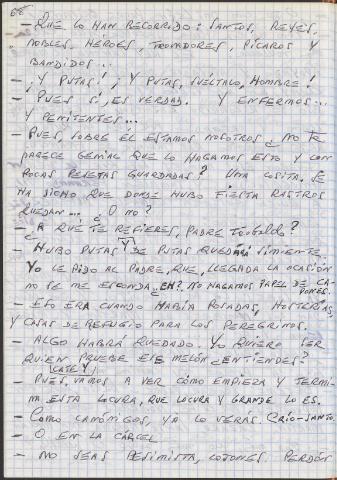 - QUE LO HAN RECORRIDO: SANTOS, REYES,
NOBLES, HÉROES, TROVADORES, PÍCAROS Y
BANDIDOS...
- ¡Y PUTAS! ¡Y PUTAS, SUÉLTALO, HOMBRE!
- PUES SÍ, ES VERDAD. Y ENFERMOS...
Y PENITENTES...
- PUES, SOBRE ÉL ESTAMOS NOSOTROS ¿NO TE
PARECE GENIAL QUE LO HAGAMOS ESTO Y CON
POCAS PESETAS GUARDADAS? UNA COSITA. SE
HA DICHO QUE DONDE HUBO FIESTA RASTROS
QUEDAN... ¿O NO?
- ¿A QUÉ TE REFIERES, PADRE TEOBALDO?
- HUBO PUTAS Y DE PUTAS QUEDARÁ SIMIENTE.
YO LE PIDO AL PADRE, QUE, LLEGADA LA OCASIÓN
NO SE ME ESCONDA ¿EH? NO HAGAMOS PAPEL DE CA-
PONES.
- ESO ERA CUANDO HABÍA POSADAS, HOSTERÍAS,
Y CASAS DE REFUGIO PARA LOS PEREGRINOS.
- ALGO HABRÁ QUEDADO. YO QUIERO SER
QUIEN PRUEBE ESE MELÓN ¿ENTIENDES?
- PUES, VAMOS A VER CÓMO EMPIEZA Y TERMI-
NA ESTA LOCURA, QUE LOCURA Y GRANDE LO ES.
- COMO CANÓNIGOS, YA LO VERÁS. CRIO-SANTO.
- O EN LA CÁRCEL
- NO SEAS PESIMISTA, COJONES. PERDÓN